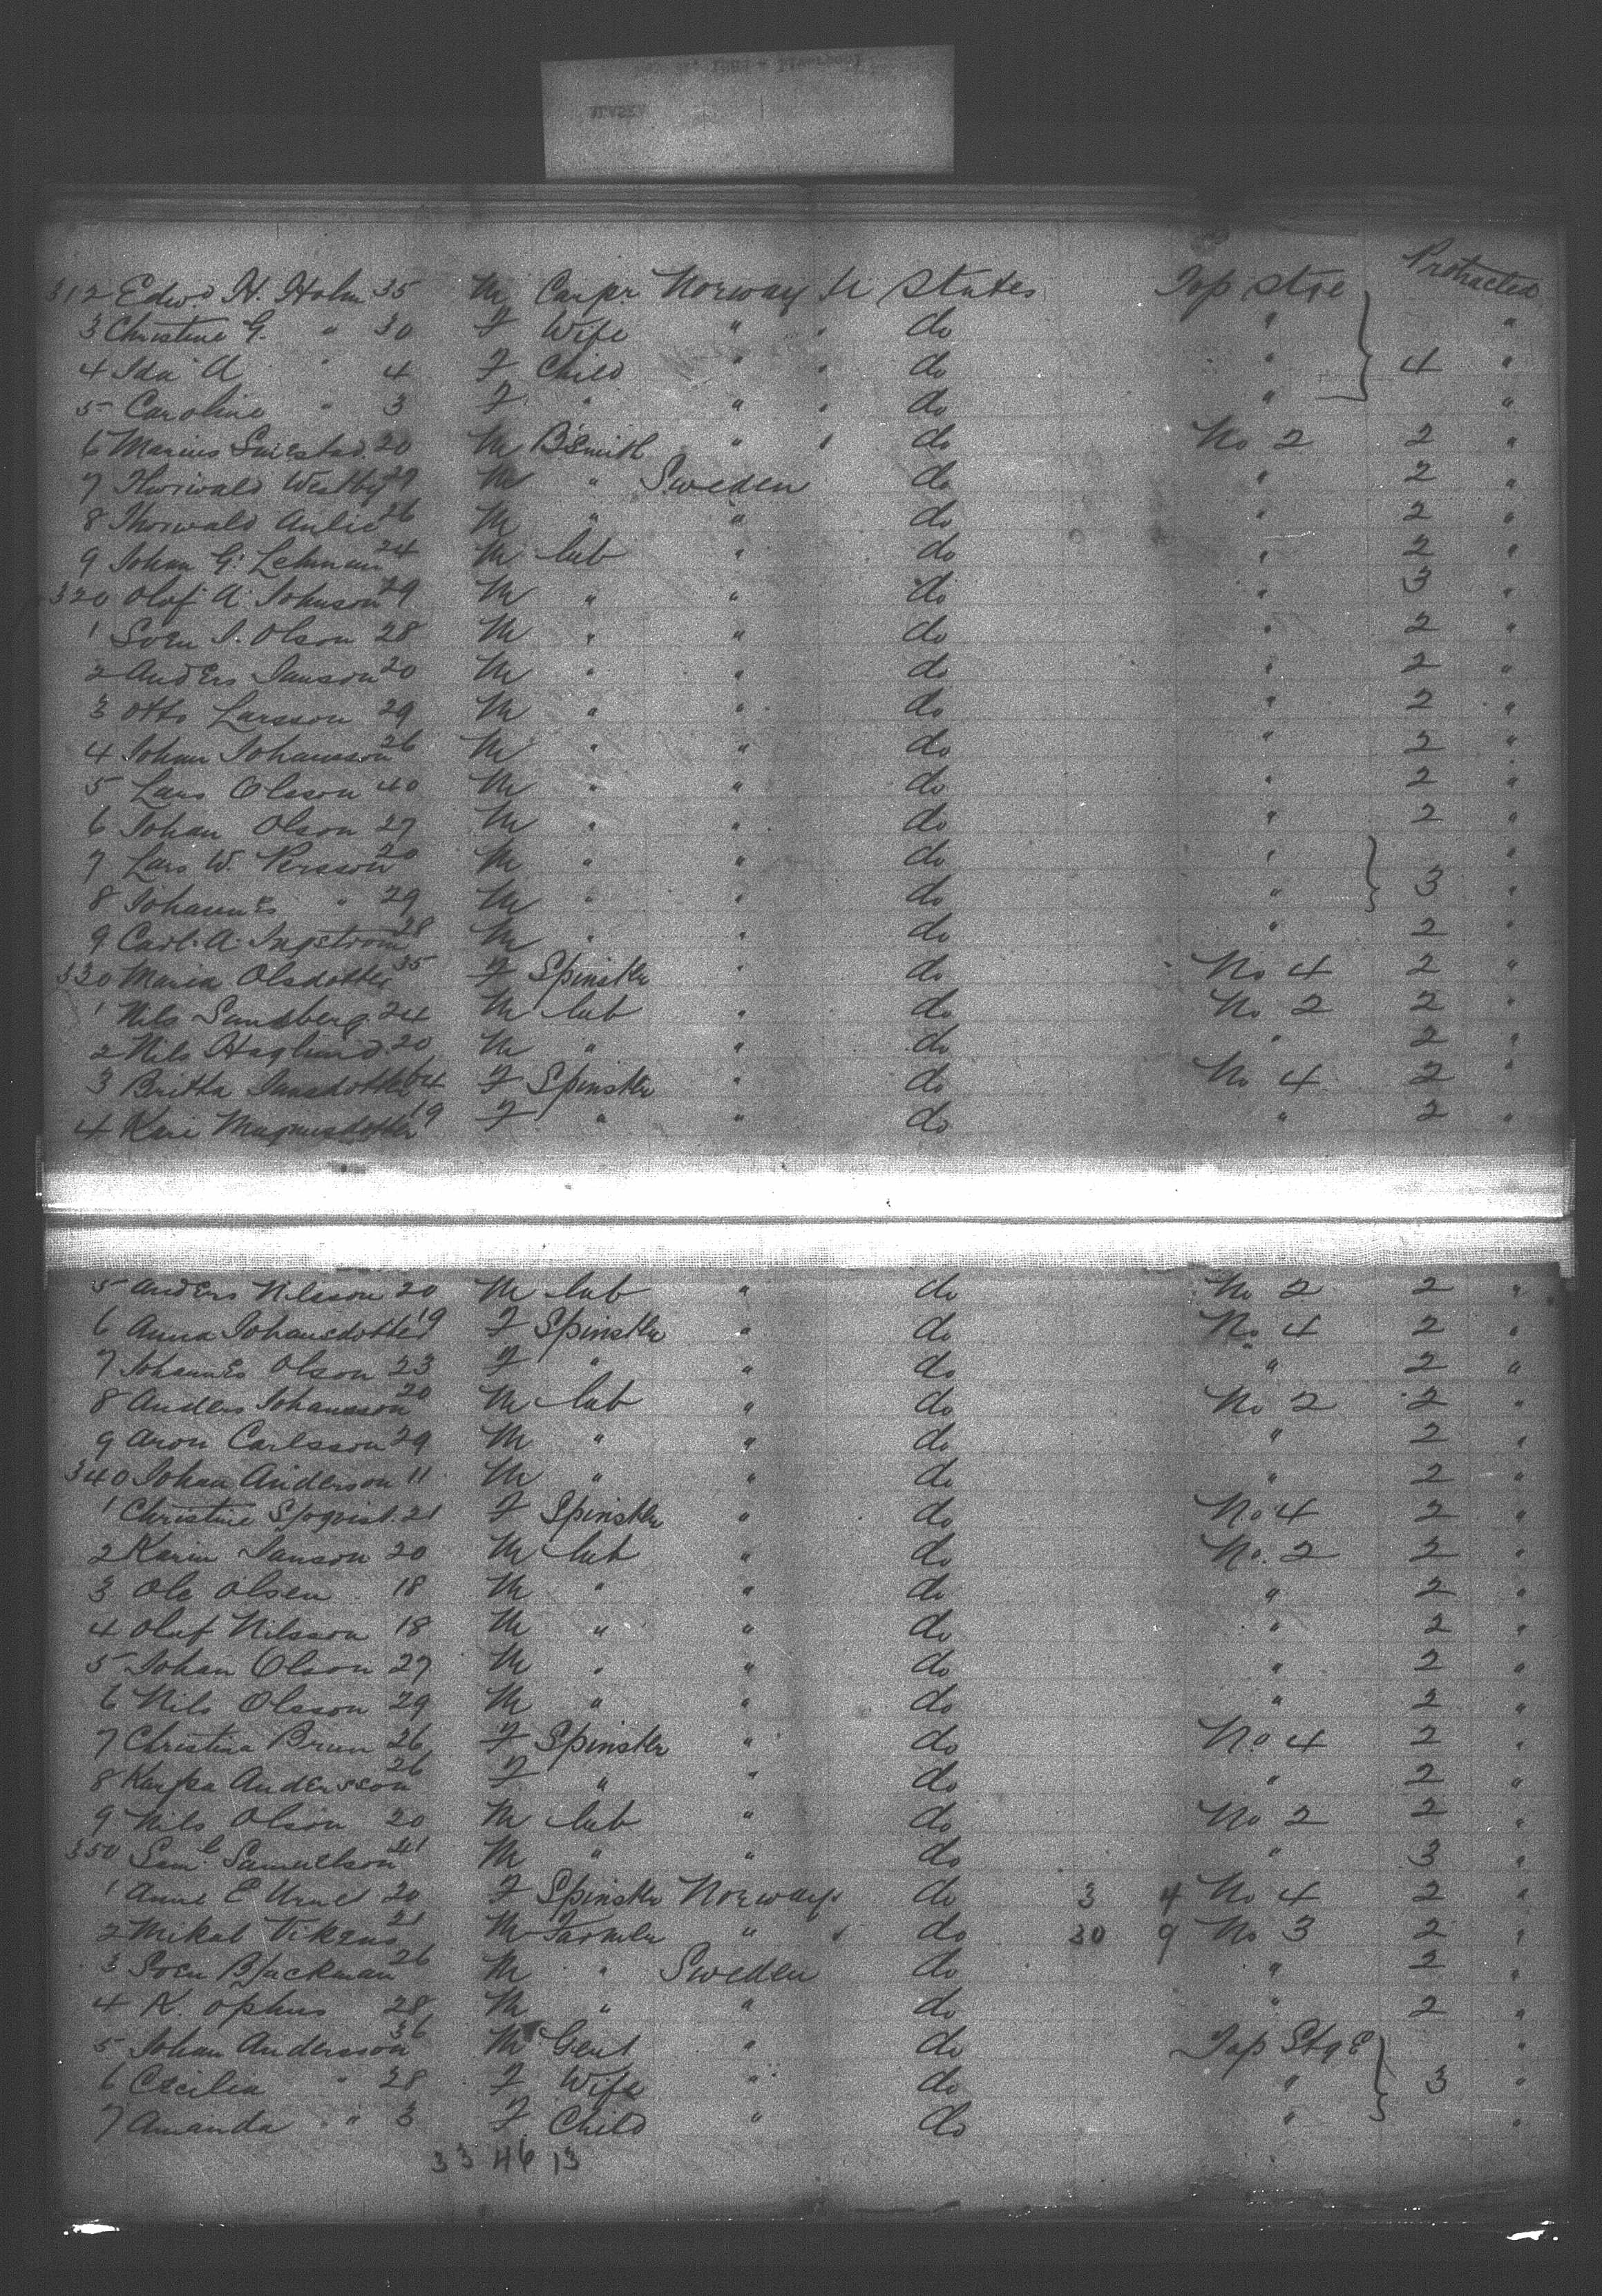 Protracted
312 Edwd H. Holm 35 M Carpr Norway U States Top stge
3 Christine G. " 30 F Wife " " do " "
4 Ida A " 4 F Child " " do " 4 "
5 Caroline " 3 F " " " do " "
6 Marius 20 M B'Smith " " do No 2 2 "
7 Thorwald Westby 29 M " Sweden do " 2 "
8 Thorwald Aulie 26 M " " do " 2 "
9 Johan G. Lehman 24 M lab " do " 2 "
320 Olof A Johnson 29 M " " do " 3 "
1 Sven J. Olson 28 M " " do " 2 "
2 Anders Janson 20 M " " do " 2 "
3 Otto Larsson 29 M " " do " 2 "
4 Johan Johansson 26 M " " do " 2 "
5 Lars Olsson 40 M " " do " 2 "
6 Johan Olson 27 M " " do " 2 "
7 Lars W. Persson 20 M " " do " "
8 Johannes " 29 M " " do " 3 "
9 Carl. A. Ingstrom 28 M " " do " 2 "
330 Maria Olsdotter 35 F Spinster " do No 4 2 "
1 Nils Sandberg 24 M lab " do No 2 2 "
2 Nils Haglund 20 M " " do " 2 "
3 Britta Jansdotter 64 F Spinster " do No 4 2 "
4 Kari Magnusdotter 19 F " " do " 2 "
5 Anders Nilsson 20 M lab " do No 2 2 "
6 Anna Johansdotter 19 F Spinster " do No 4 2 "
7 Johannes Olson 23 F " " do " 2 "
8 Anders Johansson 20 M lab " do No 2 2 "
9 Aron Carlsson 29 M " " do " 2 "
340 Johan Anderson 11 M " " do " 2 "
1 Christine Sjoqvist. 21 F Spinster " do No 4 2 "
2 Karin Janson 20 M lab " do No. 2 2 "
3 Ole Olsen 18 M " " do " 2 "
4 Oluf Nilsson 18 M " " do " 2 "
5 Johan Olson 27 M " " do " 2 "
6 Nils Olsson 29 M " " do " 2 "
7 Christina Brun 26 F Spinster " do No 4 2 "
8 Kajsa Andersson 26 F " " do " 2 "
9 Nils Olson 20 M lab " do No 2 2 "
350 Saml Samuelson 21 M " " do " 3 "
1 Anne E 20 F Spinster Norway " do 3 4 No 4 2 "
2 Mikal 21 M Farmer " " do 30 9 No 3 2 "
3 Sven Bjackman 26 M " Sweden do " 2 "
4 K. Ophus 28 M " " do " 2 "
5 Johan Andersson 36 M Gent " do Top Stge "
6 Cecilia " 28 F Wife " do " 3 "
7 Amanda " 3 F Child " do " "
33 46 13